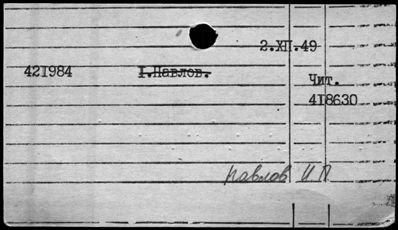 2.XII.49
42I984 I.Павлов.
Чит.
4I8630
Павлов И П